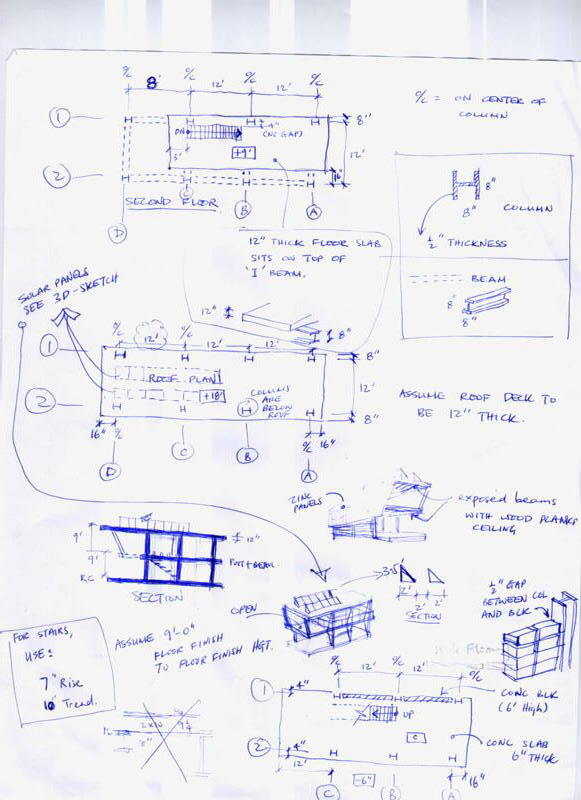 ℀ ℀ ℀ ℀
8' 12' 12'
℀ = ON CENTER OF
COLUMN
1
DN
4"
(NO GAP)
8"
3'
+9'
12'
2
16"
SECOND FLOOR
C
B
A
D
8"
8"
COLUMN
1/2" THICKNESS
BEAM
8"
8"
12" THICK FLOOR SLAB
SITS ON TOP OF
'I' BEAM.
12"
8"
SOLAR PANELS
SEE 3D-SKETCH
12' 12' 12'
1
8"
ROOF PLAN
+18'
COLUMNS
ARE
BELOW
ROOF
12'
2
8"
16"
16"
D
C
B
A
ASSUME ROOF DECK TO
BE 12" THICK.
ZINC
PANELS
exposed beams
WITH WOOD PLANKS
CEILING
9'
9'
12"
POST+BEAM
SECTION
OPEN
2'
2'
2'
SECTION
1/2" GAP
BETWEEN COL
AND BLK
FOR STAIRS,
USE:
7" Rise
10" Tread.
ASSUME 9'-0"
FLOOR FINISH
TO FLOOR FINISH HGT.
12' 12'
1
4"
UP
CONC BLK
(6' High)
2
4"
12'
CONC SLAB
6" THICK
16"
C
-6"
B
A